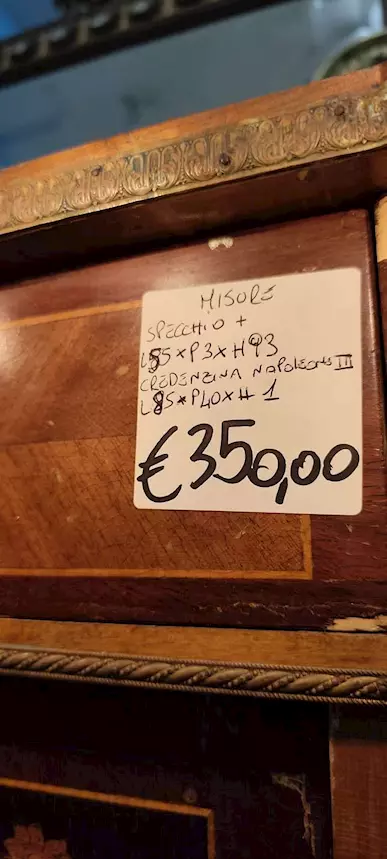 MISURE
SPECCHIO +
L55×P3×H93
CREDENZINA NAPOLEONE III
L85×P40×H 1
€350,00